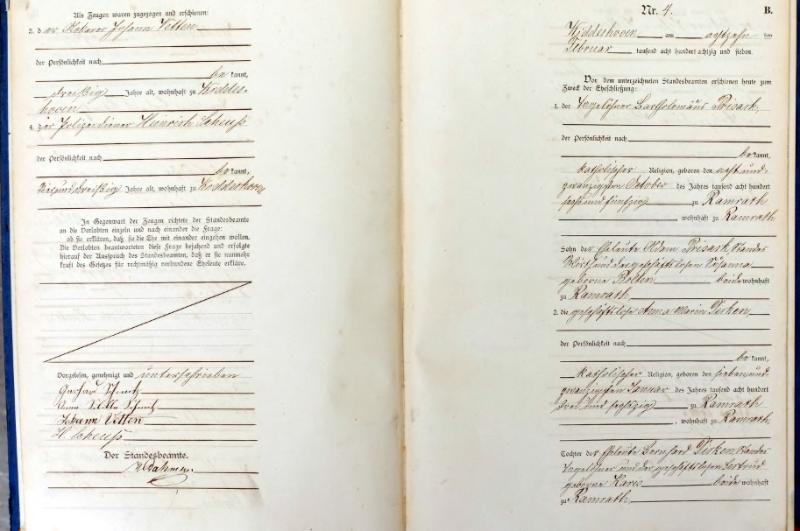 Als Zeugen waren zugezogen und erschienen:
3. der Notarer Johann Vetten
der Persönlichkeit nach
bekannt,
dreißig Jahre alt, wohnhaft zu Weddes-
hoven
4. der Polizeidiener Heinrich Scheuß
der Persönlichkeit nach
bekannt,
dreißig Jahre alt, wohnhaft zu Weddeshoven
In Gegenwart der Zeugen richtete der Standesbeamte
an die Verlobten einzeln und nach einander die Frage:
ob sie erklären, daß sie die Ehe mit einander eingehen wollen.
Die Verlobten beantworteten diese Frage bejahend und erfolgte
hierauf der Ausspruch des Standesbeamten, daß er sie nunmehr
kraft des Gesetzes für rechtmäßig verbundene Eheleute erkläre.
Vorgelesen, genehmigt und unterschrieben
Gerhard Schmitz
Anna Schmitz
Johann Vetten
H. Scheuß
Der Standesbeamte.
Dahmen
Nr. 4. B.
Weddeshoven am achtzehn ten
Februar tausend acht hundert achtzig und sieben
Vor dem unterzeichneten Standesbeamten erschienen heute zum
Zweck der Eheschließung:
1. der Tagelöhner Bartholomäus Brisack
der Persönlichkeit nach
bekannt,
katholischer Religion, geboren den acht und
zwanzigsten October des Jahres tausend acht hundert
sechs und fünfzig zu Ramrath
, wohnhaft zu Ramrath
Sohn der Eheleute Adam Brisack Standes
und der geschäftslosen Susanna
geborne Bolten beide wohnhaft
zu Ramrath
2. die geschäftslose Anna Maria Derken
der Persönlichkeit nach
bekannt,
katholischer Religion, geboren den sieben und
zwanzigsten Januar des Jahres tausend acht hundert
drei und sechzig zu Ramrath
, wohnhaft zu Ramrath
Tochter der Eheleute Bernhard Derken Standes
Tagelöhner und der geschäftslosen Gertrud
geborne beide wohnhaft
zu Ramrath